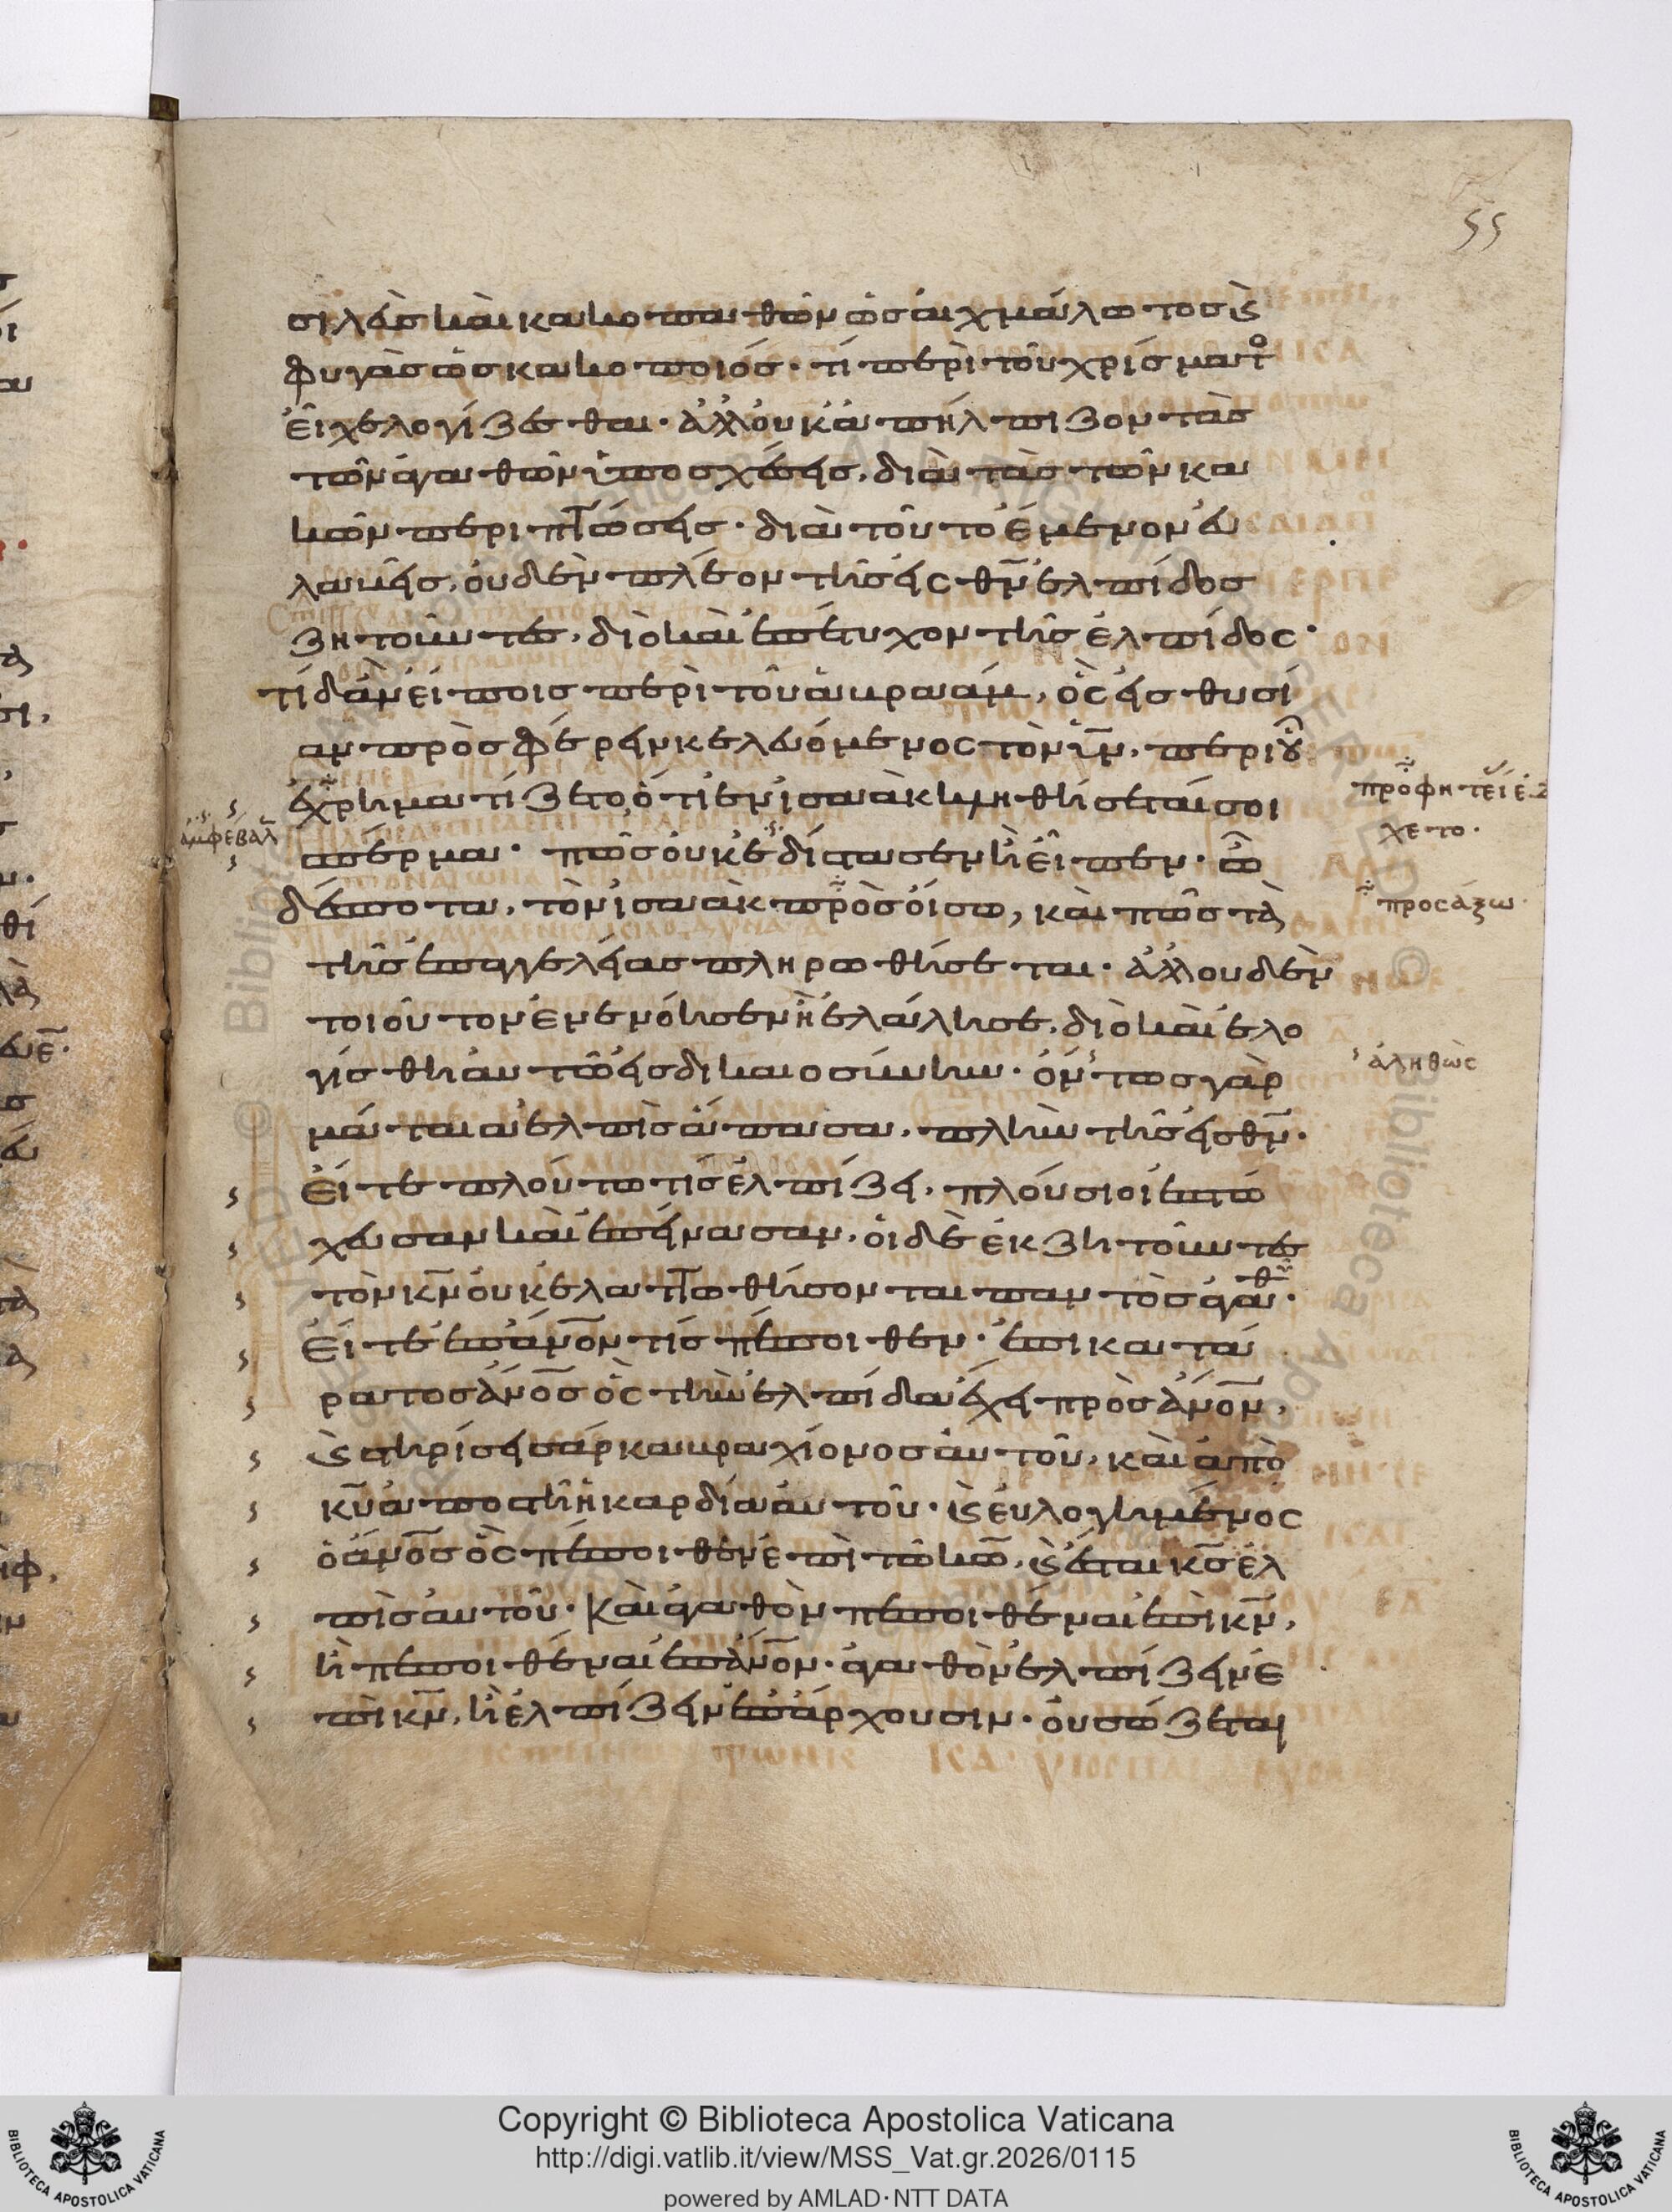 55
σιλεὺς καὶ κακοπαθῶν ὡς αἰχμάλωτος ϗ
φυγὰς ὡς κακοποιός· τί περὶ τοῦ χρίσματ
εἶχε λογίζεσθαι· ἀλλ' οὐκ ἀπήλπιζον τὰς
τῶν ἀγαθῶν ὑποσχέσεις, διὰ τὰς τῶν κα
κῶν περιπτώσεις· διὰ τοῦτο ἔμενον εὐ
λαβεῖς, οὐδὲν πλέον τῆς εἰς θν ἐλπίδος
ζητοῦντες, διὸ καὶ ἐπέτυχον τῆς ἐλπίδος·
τί δ' ἂν εἴποις περὶ τοῦ ἀβραάμ, ὃς εἰς θυσί
αν προσφέρειν κελευόμενος τὸν υν, περὶ οὗ
ἐχρηματίζετο, ὅτι ἐν ἰσαὰκ κληθήσεταί σοι
σπέρμα· πῶς οὐκ ἐδίστασεν ἢ εἶπεν· ὦ
δέσποτα, τὸν ἰσαὰκ προσοίσω, καὶ πῶς τὰ
τῆς ἐπαγγελείας πληρωθήσεται· ἀλλ' οὐδὲν
τοιοῦτον ἐνενόησεν ἢ ἐλάλησε, διὸ καὶ ἐλο
γίσθη αὐτῶ εἰς δικαιοσύνην· ὄντως γὰρ
ματαία ἐλπὶς ἅπασα, πλὴν τῆς εἰς θν·
Εἴτε πλούτω τις ἐλπίζει, πλούσιοι ἐπτώ
χευσαν καὶ ἐπείνασαν, οἱ δὲ ἐκζητοῦντες
τὸν κν οὐκ ἐλαττωθήσονται παντὸς ἀγαθ·
Εἴτε ἐπ' ἄνον τὶς πέποιθεν· ἐπικατά
ρατος ἄνος ὃς τὴν ἐλπίδα ἔχει πρὸς ἄνον,
ϗ στηρίσει σάρκα βραχίονος αὐτοῦ, καὶ ἀπὸ
κυ ἀποστῆ ἡ καρδία αὐτοῦ· ϗ εὐλογημένος
ὁ ἄνος ὃς πέποιθεν ἐπὶ τῶ κω, ϗ ἔσται κς ἐλ
πὶς αὐτοῦ· Καὶ ἀγαθὸν πεποιθέναι ἐπὶ κν,
ἢ πεποιθέναι ἐπ' ἄνον· ἀγαθὸν ἐλπίζειν ἐ
πὶ κν, ἢ ἐλπίζειν ἐπ' ἄρχουσιν· οὐ σώζεται
ἀμφέβαλ
προφητεί
χετο·
προσάξω·
ἀληθῶς
Copyright © Biblioteca Apostolica Vaticana
http://digi.vatlib.it/view/MSS_Vat.gr.2026/0115
powered by AMLAD·NTT DATA
BIBLIOTECA APOSTOLICA VATICANA
BIBLIOTECA APOSTOLICA VATICANA